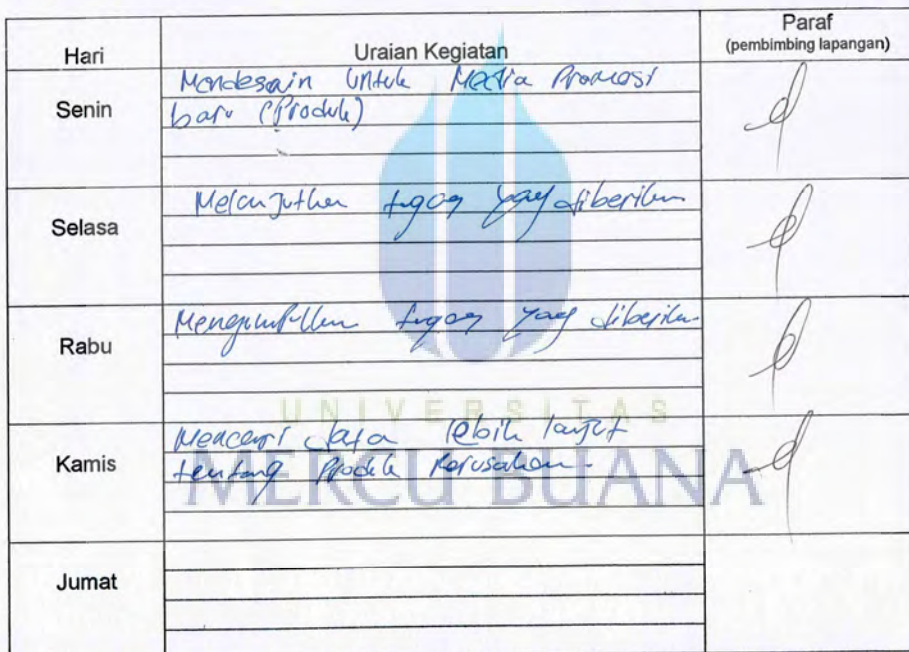 Hari Uraian Kegiatan Paraf
(pembimbing lapangan)
Senin
Mendesain untuk Media Promosi
baru (Produk)
Selasa
Melanjutkan tugas yang diberikan
Rabu
Mengumpulkan tugas yang diberikan
UNIVERSITAS
Kamis
Mencari data lebih lanjut
tentang Produk Perusahaan
MERCU BUANA
Jumat